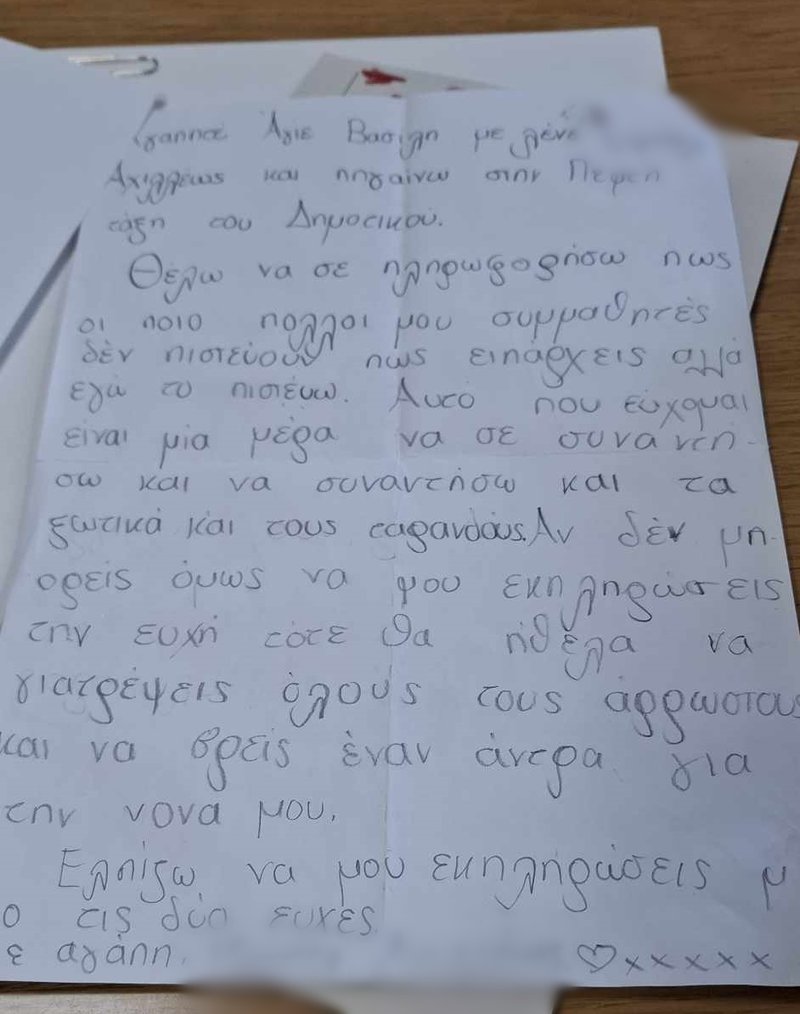 Αγαπητέ Άγιε Βασίλη με λένε
Αχιλλέως και πηγαίνω στην Πεφτη
τάξη του Δημοτικού.
Θέλω να σε πληρωφορήσω πως
οι ποιο πολλοι μου συμμαθητές
δέν πιστεύουν πως ειπάρχεις αλλά
εγώ το πιστέυω. Αυτό που εύχομαι
είναι μία μέρα να σε συναντή-
σω και να συναντήσω και τα
ξωτικά και τους ταρανδους. Αν δέν μπ-
ορείς όμως να μου εκπληρώσεις
την ευχή τότε θα ήθελα να
γιατρέψεις όλους τους άρρωστους
και να βρείς έναν άντρα για
την νονα μου.
Ελπίζω να μου εκπληρώσεις μ
ο τις δύο ευχές
ε αγάπη. ♡xxxxx